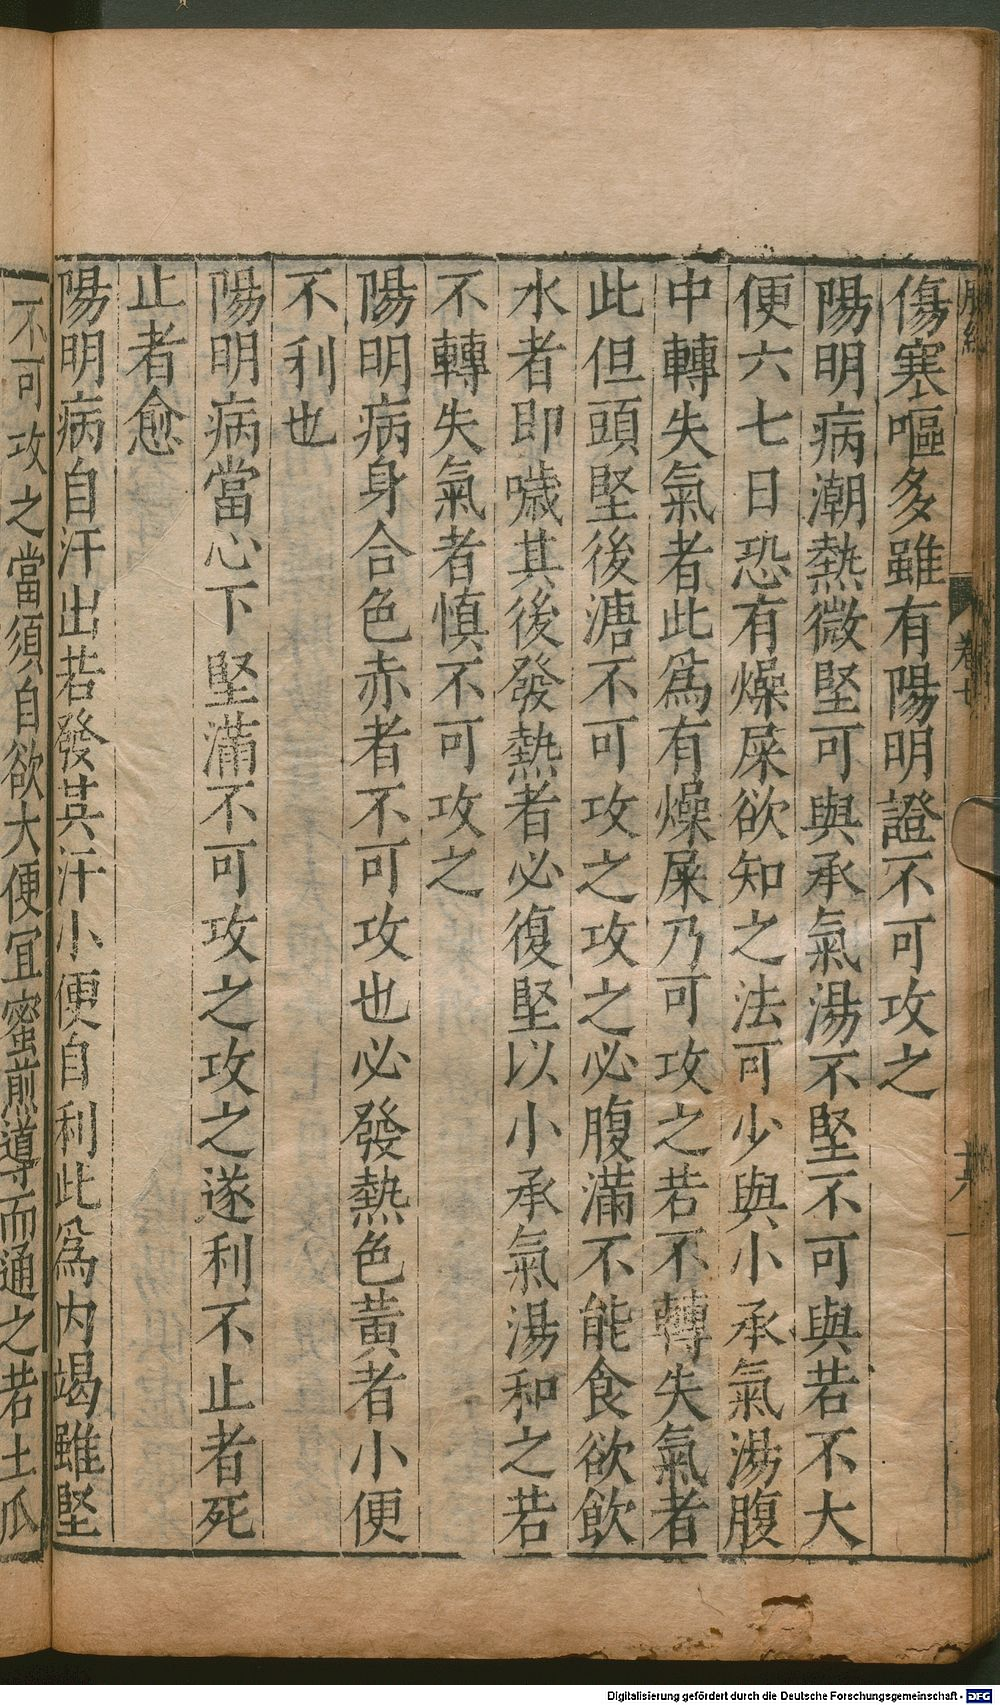 脉經 卷七 十六
傷寒嘔多雖有陽明證不可攻之
陽明病潮熱微堅可與承氣湯不堅不可與若不大
便六七日恐有燥屎欲知之法可少與小承氣湯腹
中轉失氣者此爲有燥屎乃可攻之若不轉失氣者
此但頭堅後溏不可攻之攻之必腹滿不能食欲飲
水者即噦其後發熱者必復堅以小承氣湯和之若
不轉失氣者慎不可攻之
陽明病身合色赤者不可攻也必發熱色黃者小便
不利也
陽明病當心下堅滿不可攻之攻之遂利不止者死
止者愈
陽明病自汗出若發其汗小便自利此爲內竭雖堅
不可攻之當須自欲大便宜蜜煎導而通之若土瓜
Digitalisierung gefördert durch die Deutsche Forschungsgemeinschaft - DFG